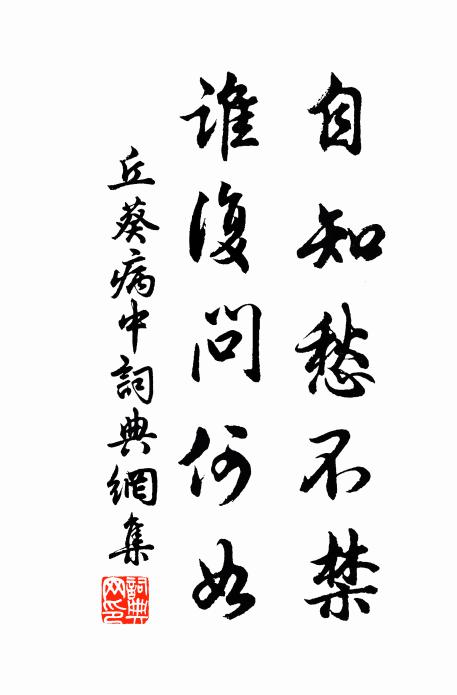 自知愁不禁
誰復問何如
丘葵病中詞典網集
詞典網印